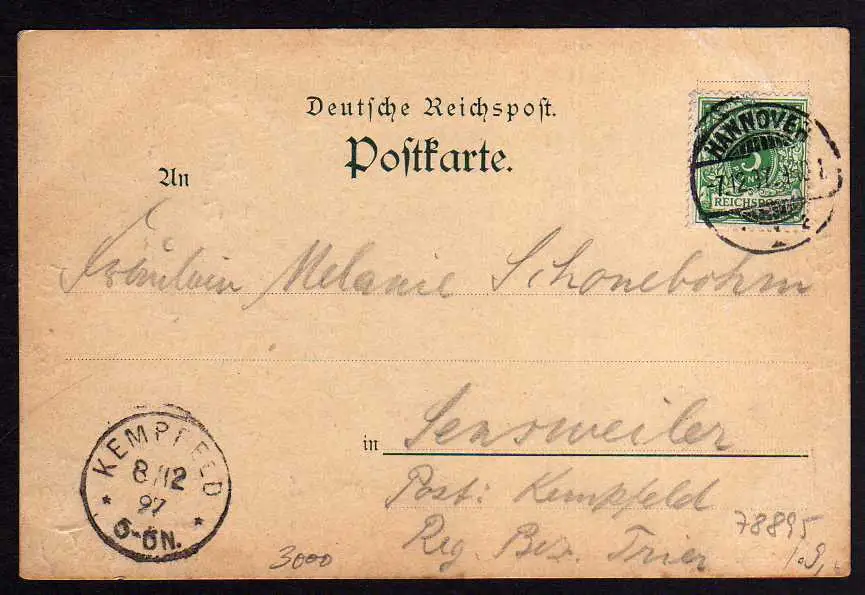 Deutsche Reichspost.
Postkarte.
An
HANNOVER
-7.12.97
5
REICHSPOST
Fräulein Melanie Schonebohm
in Sensweiler
Post: Kempfeld
Reg. Bez. Trier
KEMPFELD
8/12
97
* 5-6N. *
3000
78895